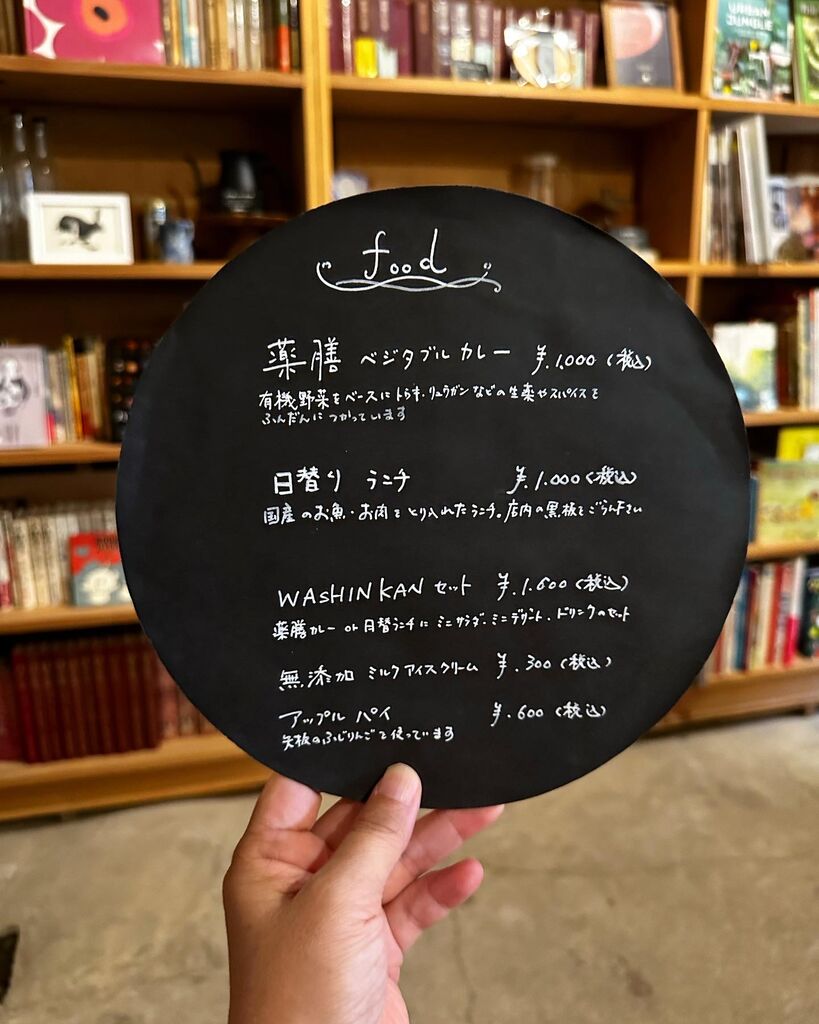 URBAN
JUNGLE
food
薬膳 ベジタブル カレー ¥.1,000 (税込)
有機野菜をベースに トウキ・リュウガン などの生薬やスパイスを
ふんだんに つかっています
日替り ランチ ¥.1.000 (税込)
国産のお魚・お肉をとり入れたランチ。店内の黒板をごらん下さい
WASHINKAN セット ¥.1.600 (税込)
薬膳カレー or 日替ランチに ミニサラダ、ミニデザート、ドリンクのセット
無添加 ミルクアイスクリーム ¥.300 (税込)
アップル パイ ¥.600 (税込)
矢板のふじりんごを使っています